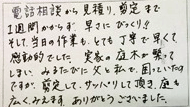 電話相談から見積り、剪定まで
1週間かからず 早さにびっくり!!
そして当日の作業も、とても丁寧で早くて
感動的でした 実家の庭木が繁って
しまい、みまたびに父と私で、困っていたの
ですが、剪定して、サッパリして頂き、庭も
広くみえます ありがとうございました。